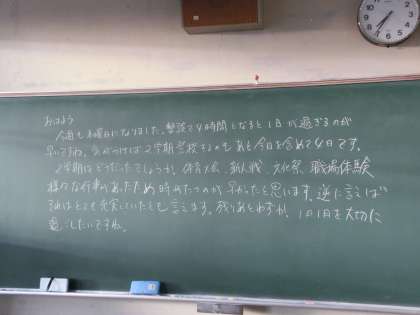 おはよう
今週も木曜日になりました。懇談で4時間となると1日が過ぎるのが
早いですね。気がつけば2学期登校するのもあと今日を含めて4日です。
2学期はどうだったでしょうか。体育大会、新人戦、文化祭、職場体験
様々な行事があったため時がたつのが早かったと思います。逆に言えば
それはとても充実していたとも言えます。残りあとわずか、1日1日を大切に
過ごしたいですね。